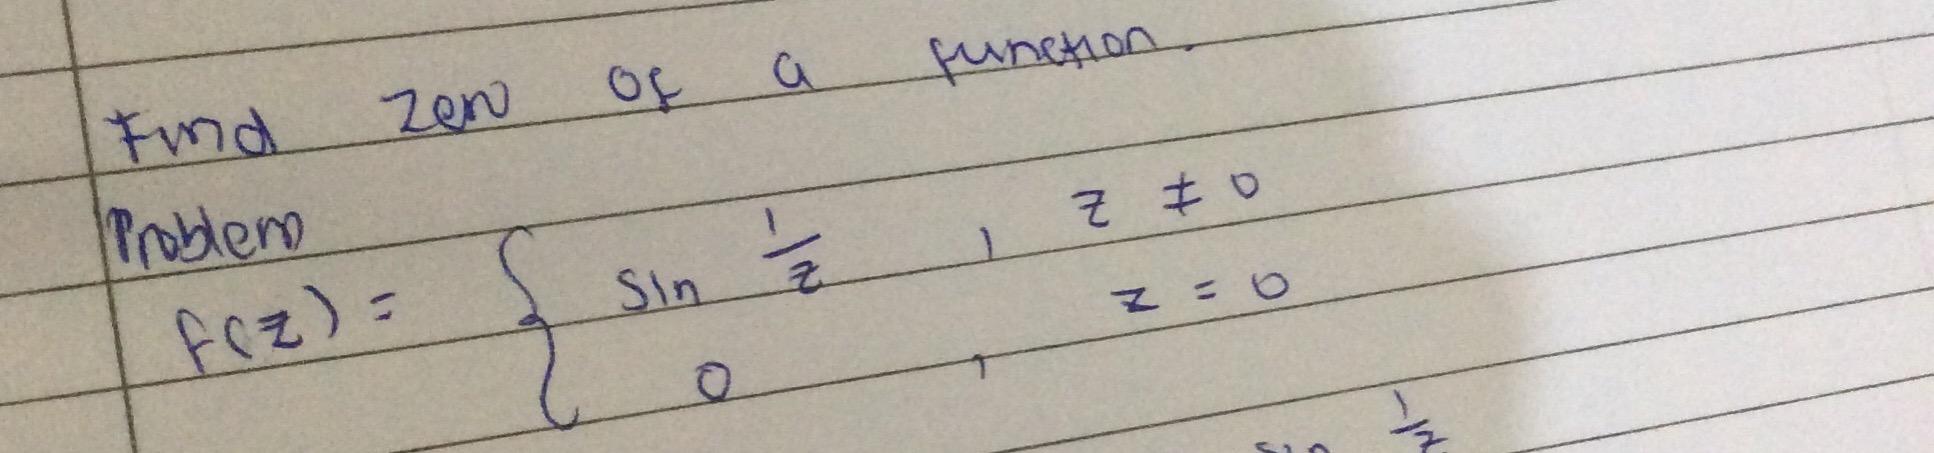 Find zero of a function.
Problem
f(z) = { sin 1/z , z ≠ 0
0 , z = 0
sin 1/z